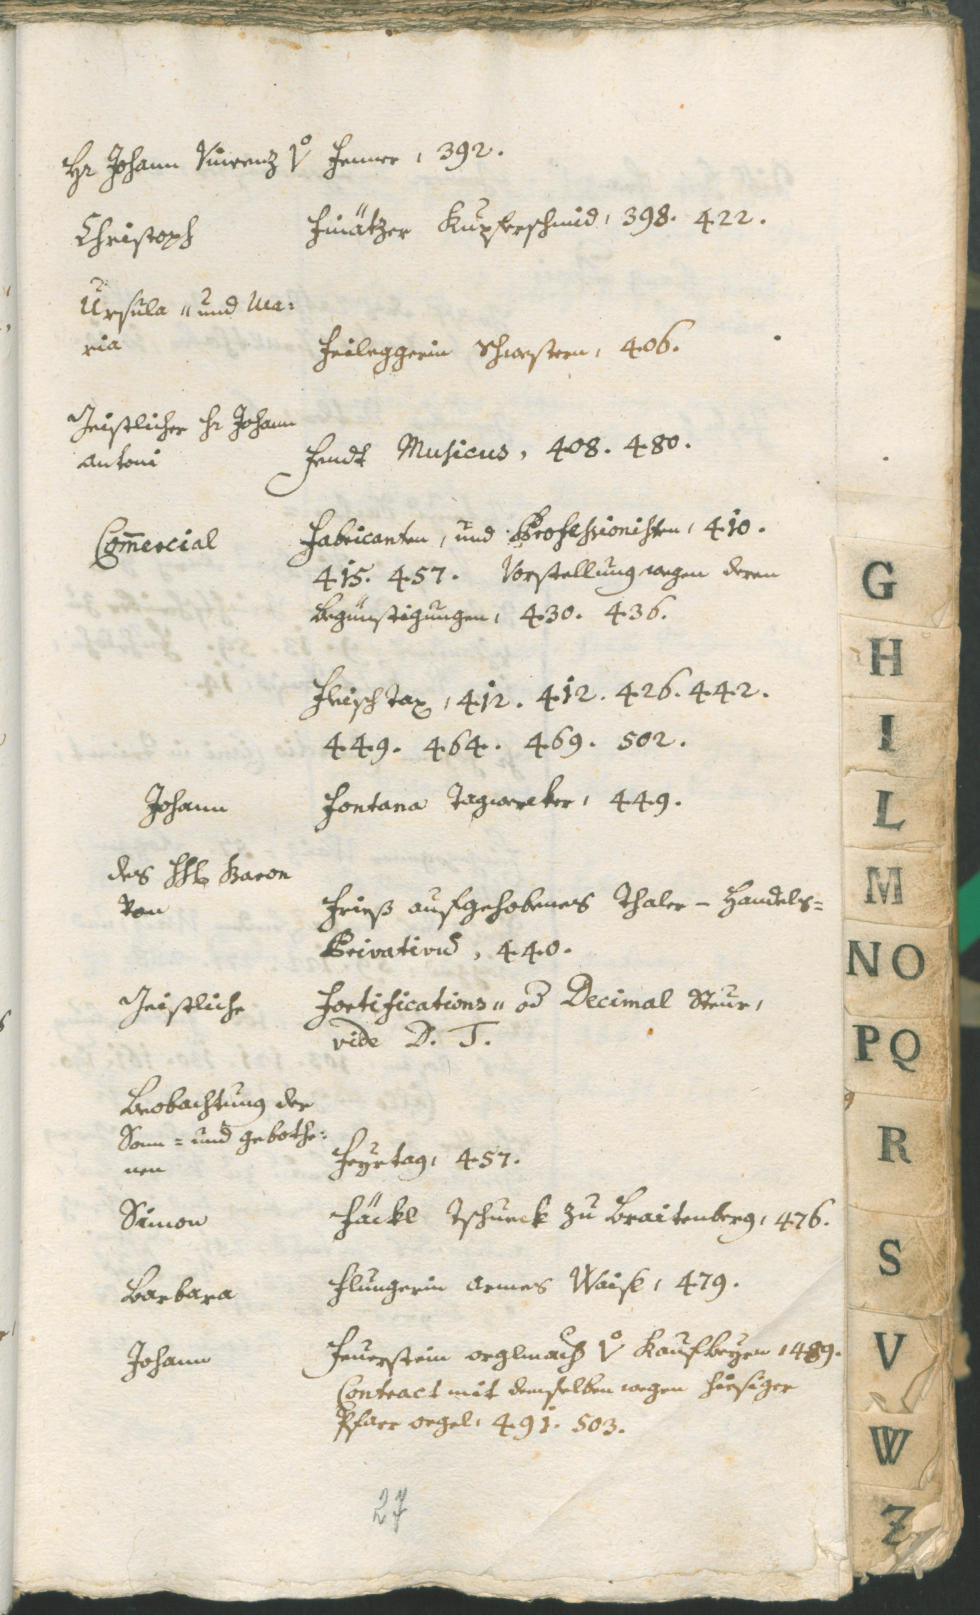 Hr Johann Vincenz V° Fenner, 392.
Christoph Finätzer Kupferschmid, 398. 422.
Ursula „ und Ma:
ria Feileggerin Schwestern, 406.
Geistlicher Hr Johann
Antoni Fendt Musicus, 408. 480.
Com̄ercial Fabricanten, und Professionisten, 410.
415. 457. Vorstellung wegen deren
Begünstigungen, 430. 436.
Fleisch Tax, 412. 412. 426. 442.
449. 464. 469. 502.
Johann Fontana Tagwerker, 449.
des Baron
von Frieß aufgehobenes Thaler - Handels=
Privativum, 440.
Geistliche Fortifications „ od Decimal Steur,
vide D. T.
Beobachtung der
Sonn = und gebothe:
nen Feyrtag, 457.
Simon Fäckl Tschurck zu Braitenberg, 476.
Barbara Flungerin armes Waisl, 479.
Johann Feuerstein orglmach V° Kaufbeyrn, 489.
Contract mit demselben wegen hiesiger
Pfarr orgel, 491. 503.
27
G
H
I
L
M
N O
P Q
R
S
V
W
Z